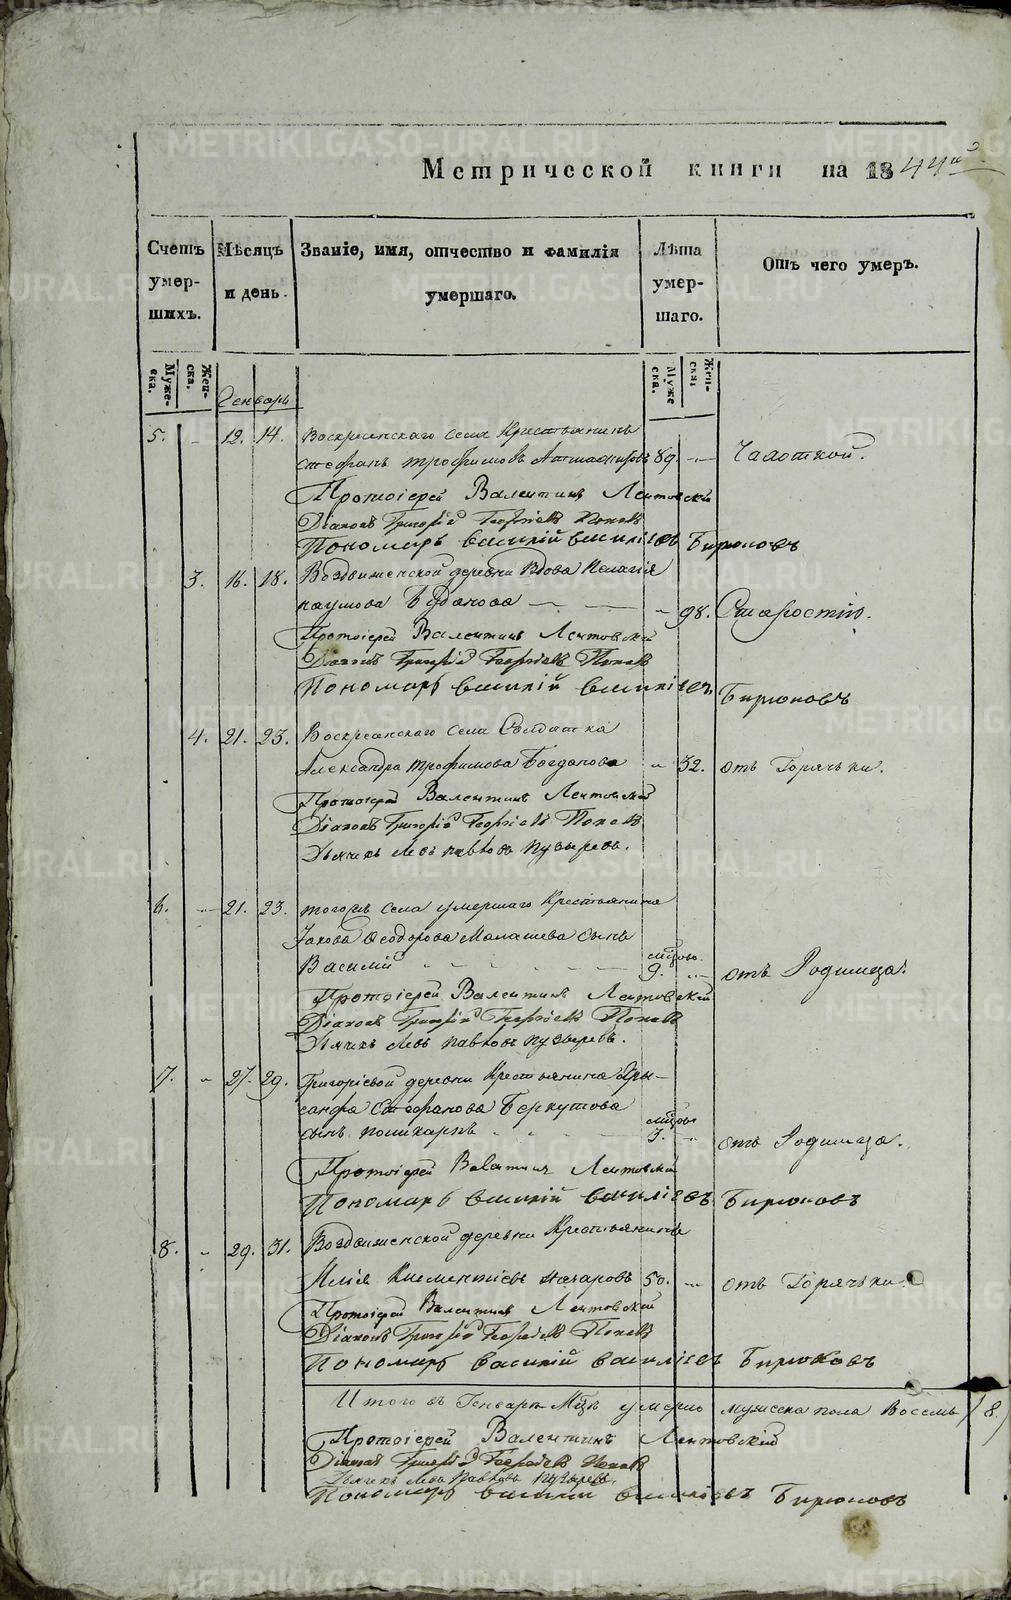 Метрической книги на 1844й
Счетъ умерших. Мѣсяцъ и день. Званіе, имя, отчество и фамилія умершаго. Лѣта умершаго. Отъ чего умеръ.
Мужеска. Женска. Мужеска Женска
Генварь
5. 12. 14. Воскресенскаго села Крестьянинъ
Стефанъ Трофимовъ 89. Чахоткой.
Протоіерей Валентинъ Лентовскій
Діаконъ Григорій Георгіевъ Поповъ
Пономарь Василій Васильевъ Бирюковъ
3. 16. 18. Воздвиженской деревни Вдова Пелагія
Наумова 98. Старостію.
Протоіерей Валентинъ Лентовскій
Діаконъ Григорій Георгіевъ Поповъ
Пономарь Василій Васильевъ Бирюковъ
4. 21. 23. Воскресенскаго села Солдатка
Александра Трофимова Богданова 32. отъ Горячьки.
Протоіерей Валентинъ Лентовскій
Діаконъ Григорій Георгіевъ Поповъ
Дьячекъ Левъ Павловъ Пузыревъ.
6. 21. 23. тогожъ села умершаго Крестьянина
Іакова Ѳеодорова Малашева сынъ
Василій 9. отъ Родимца.
Протоіерей Валентинъ Лентовскій
Діаконъ Григорій Георгіевъ Поповъ
Дьячекъ Левъ Павловъ Пузыревъ.
7. 27. 29. Григоріевой деревни Крестьянина Хры-
санфа Стефанова Беркутова
сынъ Поликарпъ 3. отъ Родимца.
Протоіерей Валентинъ Лентовскій
Пономарь Василій Васильевъ Бирюковъ
8. 29. 31. Воздвиженской деревни Крестьянинъ
Илія Климентіевъ Назаровъ 50. отъ Горячьки.
Протоіерей Валентинъ Лентовскій
Діаконъ Григорій Георгіевъ Поповъ
Пономарь Василій Васильевъ Бирюковъ
Итого въ Генварѣ Мцѣ умерло мужеска пола Восемь /8./
Протоіерей Валентинъ Лентовскій
Діаконъ Григорій Георгіевъ Поповъ
Дьячекъ Левъ Павловъ Пузыревъ.
Пономарь Василій Васильевъ Бирюковъ
METRIKI.GASO-URAL.RU